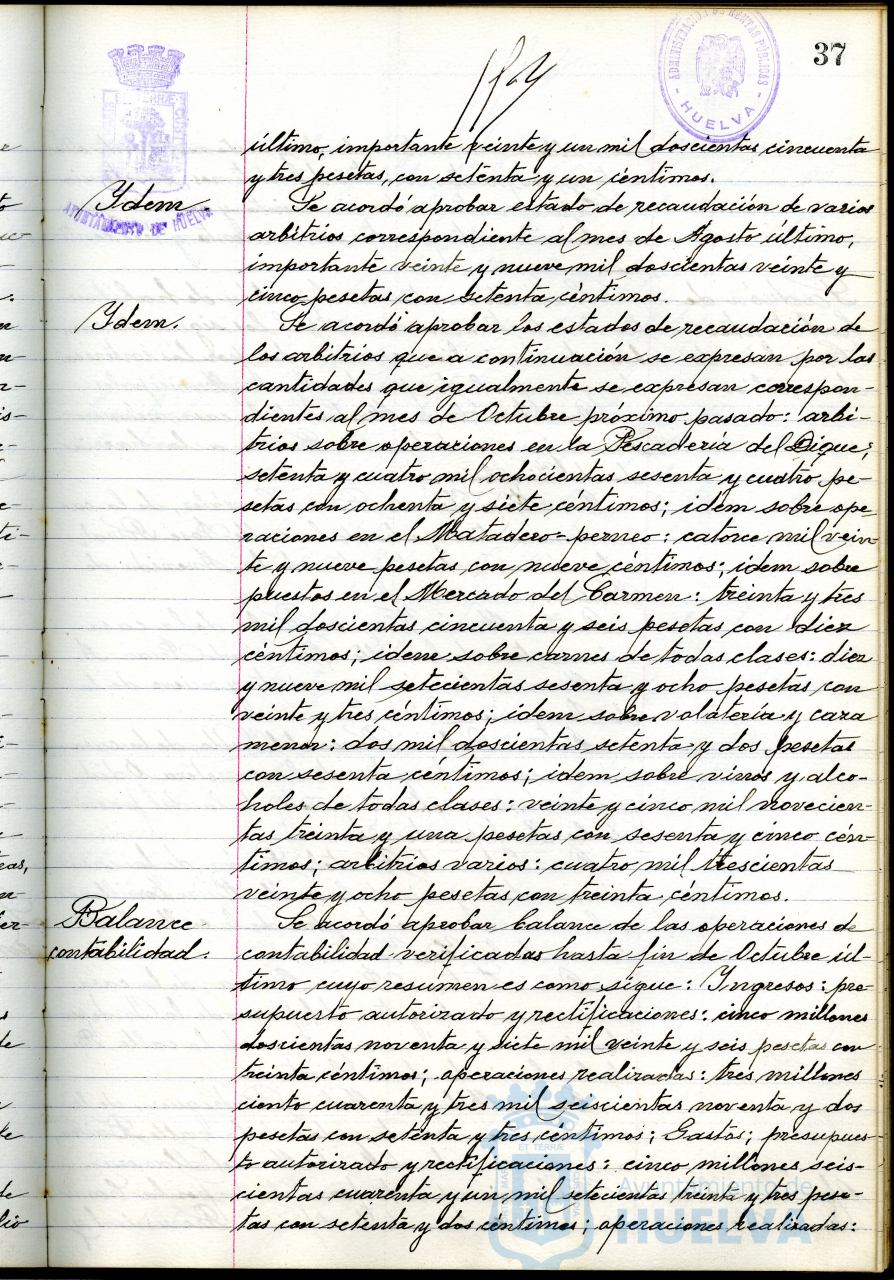 37
ADMINISTRACIÓN DE RENTAS PÚBLICAS
HUELVA
AYUNTAMIENTO DE HUELVA
último, importante veinte y un mil doscientas cincuenta
y tres pesetas, con setenta y un céntimos.
Ydem
Se acordó aprobar estado de recaudación de varios
arbitrios correspondiente al mes de Agosto último,
importante veinte y nueve mil doscientas veinte y
cinco pesetas con setenta céntimos.
Ydem.
Se acordó aprobar los estados de recaudación de
los arbitrios que a continuación se expresan por las
cantidades que igualmente se expresan correspon-
dientes al mes de Octubre próximo pasado: arbi-
trios sobre operaciones en la Pescadería del Dique;
setenta y cuatro mil ochocientas sesenta y cuatro pe-
setas con ochenta y siete céntimos; idem sobre ope-
raciones en el Matadero-perneo: catorce mil vein-
te y nueve pesetas con nueve céntimos; idem sobre
puestos en el Mercado del Carmen: treinta y tres
mil doscientas cincuenta y seis pesetas con diez
céntimos; idem sobre carnes de todas clases: diez
y nueve mil setecientas sesenta y ocho pesetas con
veinte y tres céntimos; idem sobre volatería y caza
menor: dos mil doscientas setenta y dos pesetas
con sesenta céntimos; idem sobre vinos y alco-
holes de todas clases: veinte y cinco mil novecien-
tas treinta y una pesetas con sesenta y cinco cén-
timos; arbitrios varios: cuatro mil trescientas
veinte y ocho pesetas con treinta céntimos.
Balance
contabilidad.
Se acordó aprobar balance de las operaciones de
contabilidad verificadas hasta fin de Octubre úl-
timo cuyo resúmen es como sigue: Yngresos: pre-
supuesto autorizado y rectificaciones: cinco millones
doscientas noventa y siete mil veinte y seis pesetas con
treinta céntimos; operaciones realizadas: tres millones
ciento cuarenta y tres mil seiscientas noventa y dos
pesetas con setenta y tres céntimos; Gastos; presupues-
to autorizado y rectificaciones: cinco millones seis-
cientas cuarenta y un mil setecientas treinta y tres pese-
tas con setenta y dos céntimos; operaciones realizadas:
Ayuntamiento de
HUELVA